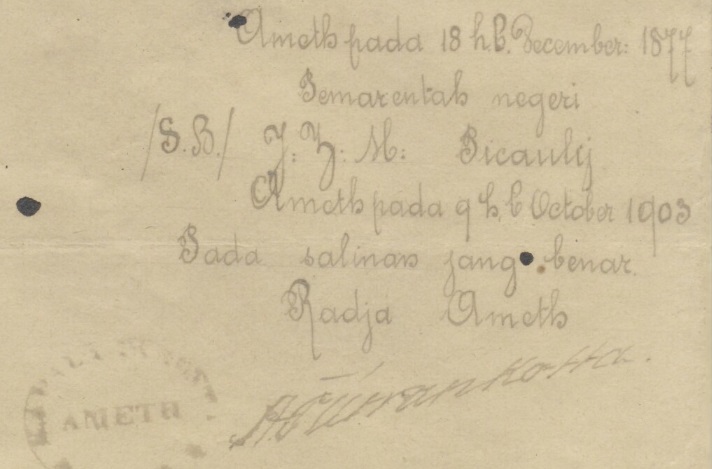 Ameth pada 18 h.b. December: 1877
Pemarentah negeri
/S.B./ J: Z: M: Picaulij
Ameth pada 9 h. b October 1903
Pada salinan jang benar.
Radja Ameth
AMETH